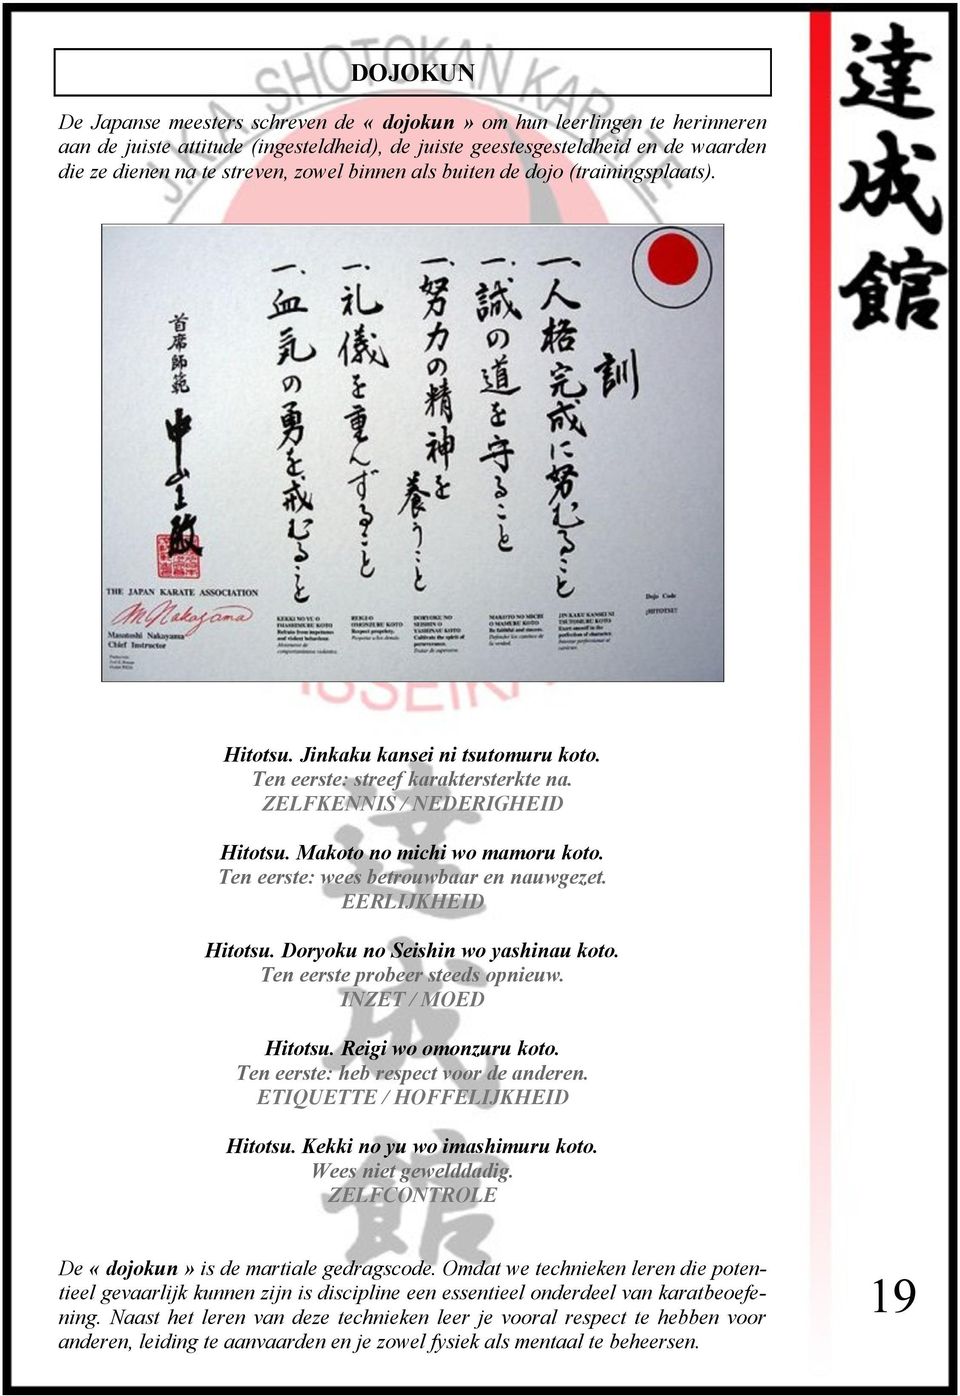 DOJOKUN
De Japanse meesters schreven de « dojokun » om hun leerlingen te herinneren
aan de juiste attitude (ingesteldheid), de juiste geestesgesteldheid en de waarden
die ze dienen na te streven, zowel binnen als buiten de dojo (trainingsplaats).
J.K.A. SHOTOKAN KARATE
訓
一、人格完成に努むること
一、誠の道を守ること
一、努力の精神を養うこと
一、礼儀を重んずること
一、血気の勇を戒むること
首席師範
中山正敏
THE JAPAN KARATE ASSOCIATION
M. Nakayama
Masatoshi Nakayama
Chief Instructor
KEKKI NO YU O
IMASHIMURU KOTO
Refrain from impetuous
and violent behaviour.
REIGI O
OMONZURU KOTO
Respect propriety.
DORYOKU NO
SEISHIN O
YASHINAU KOTO
Cultivate the spirit of
perseverance.
MAKOTO NO MICHI
O MAMURU KOTO
Be faithful and sincere.
JIN KAKU KANSEI NI
TSUTOMURU KOTO
Exert oneself in the
perfection of character.
Dojo Code
¡HITOTSU!
Hitotsu. Jinkaku kansei ni tsutomuru koto.
Ten eerste: streef karaktersterkte na.
ZELFKENNIS / NEDERIGHEID
Hitotsu. Makoto no michi wo mamoru koto.
Ten eerste: wees betrouwbaar en nauwgezet.
EERLIJKHEID
Hitotsu. Doryoku no Seishin wo yashinau koto.
Ten eerste probeer steeds opnieuw.
INZET / MOED
Hitotsu. Reigi wo omonzuru koto.
Ten eerste: heb respect voor de anderen.
ETIQUETTE / HOFFELIJKHEID
Hitotsu. Kekki no yu wo imashimuru koto.
Wees niet gewelddadig.
ZELFCONTROLE
De « dojokun » is de martiale gedragscode. Omdat we technieken leren die poten-
tieel gevaarlijk kunnen zijn is discipline een essentieel onderdeel van karatbeoefe-
ning. Naast het leren van deze technieken leer je vooral respect te hebben voor
anderen, leiding te aanvaarden en je zowel fysiek als mentaal te beheersen.
達成館
達成館
19